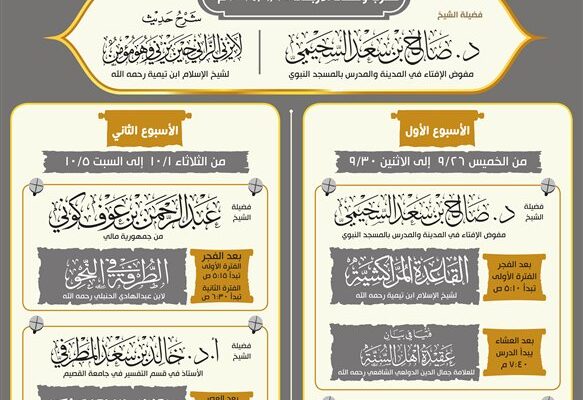 فضيلة الشيخ
د. صالح بن سعد السحيمي
مفوض الإفتاء في المدينة والمدرس بالمسجد النبوي
شرح حديث
لا يزني الزاني حين يزني وهو مؤمن
لشيخ الإسلام ابن تيمية رحمه الله
الأسبوع الأول
من الخميس ٩/٢٦ إلى الاثنين ٩/٣٠
فضيلة الشيخ
د. صالح بن سعد السحيمي
مفوض الإفتاء في المدينة والمدرس بالمسجد النبوي
بعد الفجر
الفترة الأولى
تبدأ ٥:١٠ ص
القاعدة المراكشية
لشيخ الإسلام ابن تيمية رحمه الله
بعد العشاء
يبدأ الدرس
٧:٤٠ م
فتيا في بيان
عقيدة أهل السنة
للعلامة جمال الدين الدولعي الشافعي رحمه الله
الأسبوع الثاني
من الثلاثاء ١٠/١ إلى السبت ١٠/٥
فضيلة الشيخ
عبد الرحمن بن عوف كوني
من جمهورية مالي
بعد الفجر
الفترة الأولى
تبدأ ٥:١٥ ص
الفترة الثانية
تبدأ ٦:٣٠ ص
الطرفة في النحو
لابن عبدالهادي الحنبلي رحمه الله
فضيلة الشيخ
أ.د. خالد بن سعد المطرفي
الأستاذ في قسم التفسير في جامعة القصيم
بعد العصر